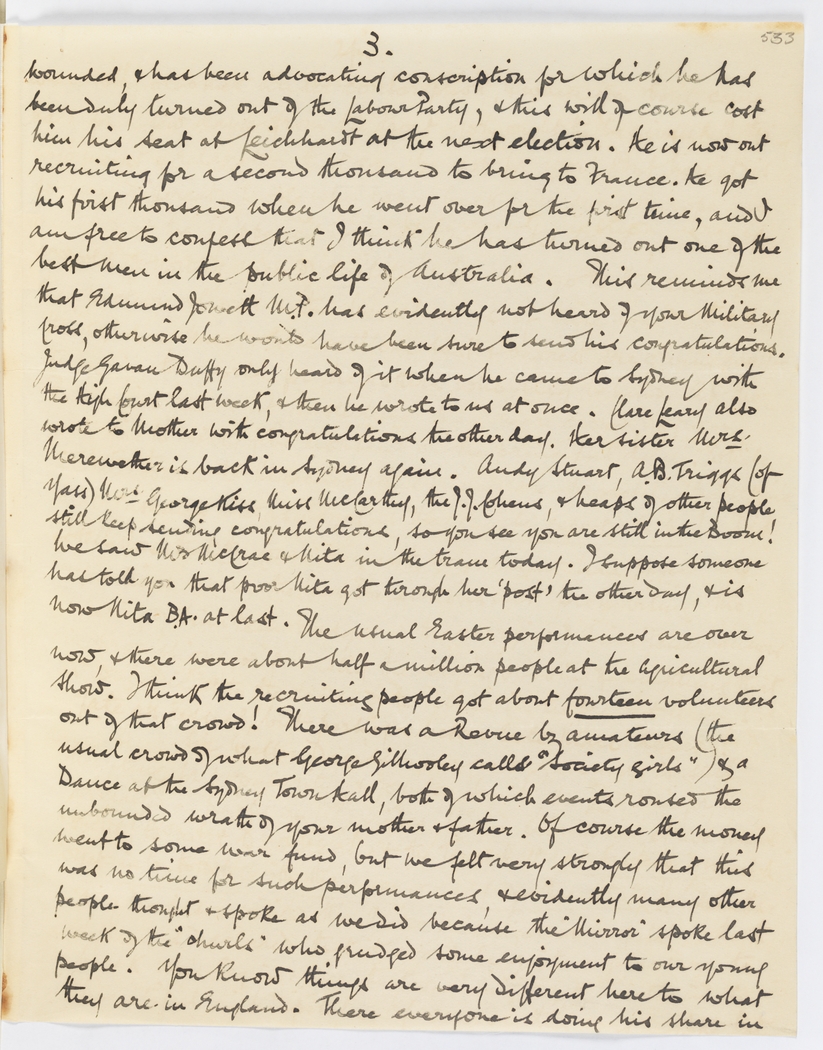 533
3.
wounded, & has been advocating conscription for which he has
been duly turned out of the Labour Party, & this will of course cost
him his seat at Leichhardt at the next election. He is now out
recruiting for a second thousand to bring to France. He got
his first thousand when he went over for the first time, and I
am free to confess that I think he has turned out one of the
best men in the public life of Australia. This reminds me
that Edmund Jowett M.P. has evidently not heard of your Military
Cross, otherwise he would have been sure to send his congratulations.
Judge Gavan Duffy only heard of it when he came to Sydney with
the High Court last week, & then he wrote to us at once. Clare Leary also
wrote to Mother with congratulations the other day. Her sister Mrs.
Merewether is back in Sydney again. Andy Stuart, A.B. Triggs (of
Yass) Mrs George Kiss, Miss McCarthy, the J.J. Cohens, & heaps of other people
still keep sending congratulations, so you see you are still in the Boom!
We saw Mrs McCrae & Nita in the tram today. I suppose someone
has told you that poor Nita got through her 'post' the other day, & is
now Nita B.A. at last.
The usual Easter performances are over
now, & there were about half a million people at the Agricultural
Show. I think the recruiting people got about fourteen volunteers
out of that crowd! There was a Revue by amateurs (the
usual crowd of what George Gillooley calls "Society girls") & a
Dance at the Sydney Town Hall, both of which events roused the
unbounded wrath of your mother & father. Of course the money
went to some war fund, but we felt very strongly that this
was no time for such performances, & evidently many other
people thought & spoke as we did because the "Mirror" spoke last
week of the "churls" who grudged some enjoyment to our young
people. You know things are very different here to what
they are in England. There everyone is doing his share in